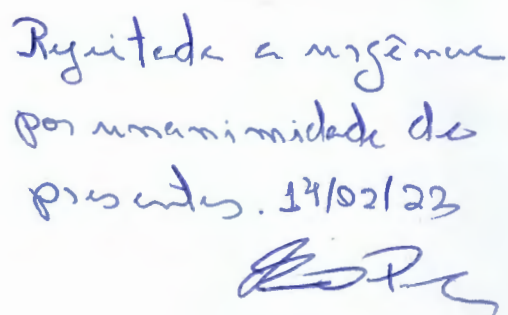 Rejeitada a urgência
por unanimidade do
presentes. 14/02/23